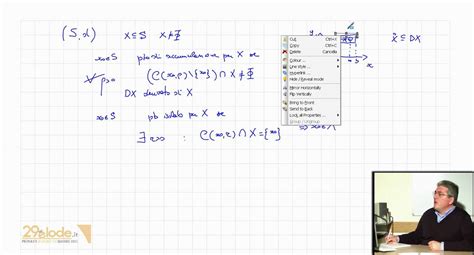 (S,d) X⊆S X≠Φ
x₀∈S pto di accumulazione per X se
∀ρ>0 (C(x₀,ρ)\{x₀})∩X≠Φ
DX derivato di X
x₀∈S pto isolato per X se
∃ε>0 : C(x₀,ε)∩X={x₀}
X̊ ⊆ DX
x
Cut Ctrl+X
Copy Ctrl+C
Delete Cancella
Colour ...
Line style ...
Hyperlink ...
Hide / Reveal mode
Mirror Horizontally
Flip Vertically
Bring to Front
Send to Back
Lock all Properties ...
Group / Ungroup
29elode.it